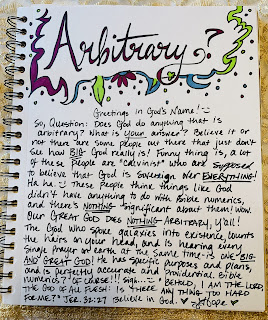 Arbitrary?
Greetings in God's Name! :)
So, Question: Does God do anything that is
arbitrary? What is your answer? Believe it or
not there are some people out there that just don't
see how BIG God really is! Funny thing is, a lot
of these people are "Calvinist" who are supposed
to believe that God is Sovereign over EVERYTHING!
Ha ha :) These people think things like God
didn't have anything to do with Bible numerics,
and there's NOTHING significant about them! Wow.
Our GREAT GOD does NOTHING ARBITRARY, y'all!
The God who spoke galaxies into existence, counts
the hairs on your head, and is hearing every
single prayer on earth at the same time - is one BIG
AND GREAT GOD! He has specific purposes and plans,
and is perfectly accurate and providential. Bible
numerics? "Of course!!! Sighh... "Behold, I AM THE LORD,
THE GOD OF ALL FLESH: IS THERE ANY THING TOO HARD
FOR ME?" Jer. 32:27 Believe in God. ♡ Hope ♡